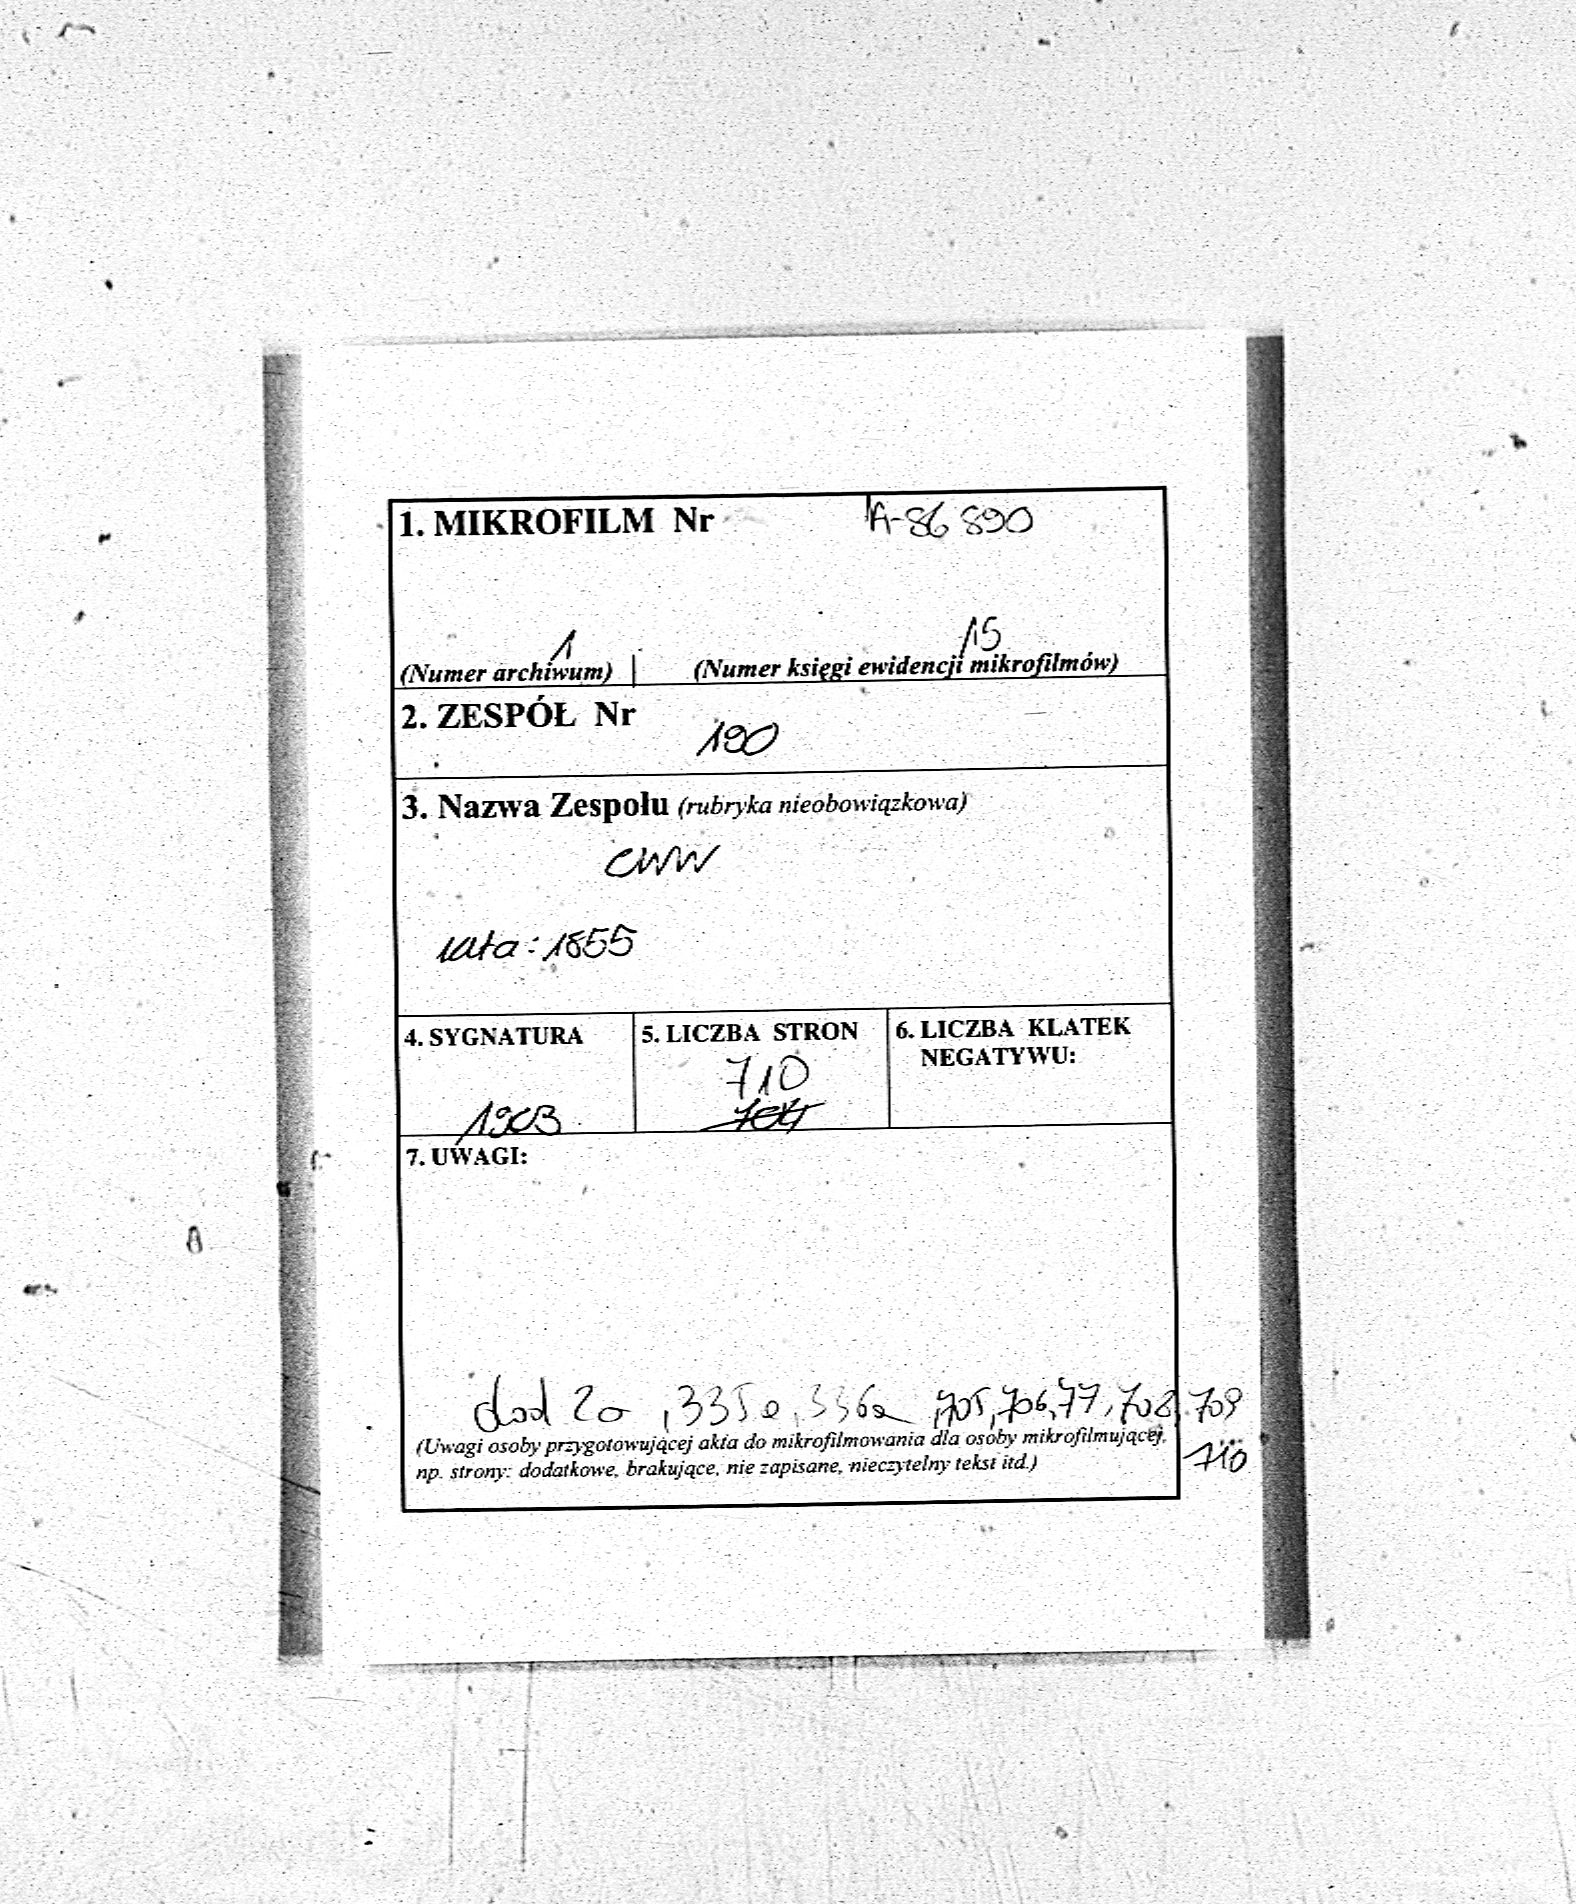 1. MIKROFILM Nr A-86 890
1 15
(Numer archiwum) (Numer księgi ewidencji mikrofilmów)
2. ZESPÓŁ Nr
190
3. Nazwa Zespołu (rubryka nieobowiązkowa)
CWW
lata: 1855
4. SYGNATURA 5. LICZBA STRON 6. LICZBA KLATEK
NEGATYWU:
710
1903 704
7. UWAGI:
dod 2a, 335a, 336a, 705, 706, 77, 708, 709
(Uwagi osoby przygotowującej akta do mikrofilmowania dla osoby mikrofilmującej,
710
np. strony: dodatkowe, brakujące, nie zapisane, nieczytelny tekst itd.)